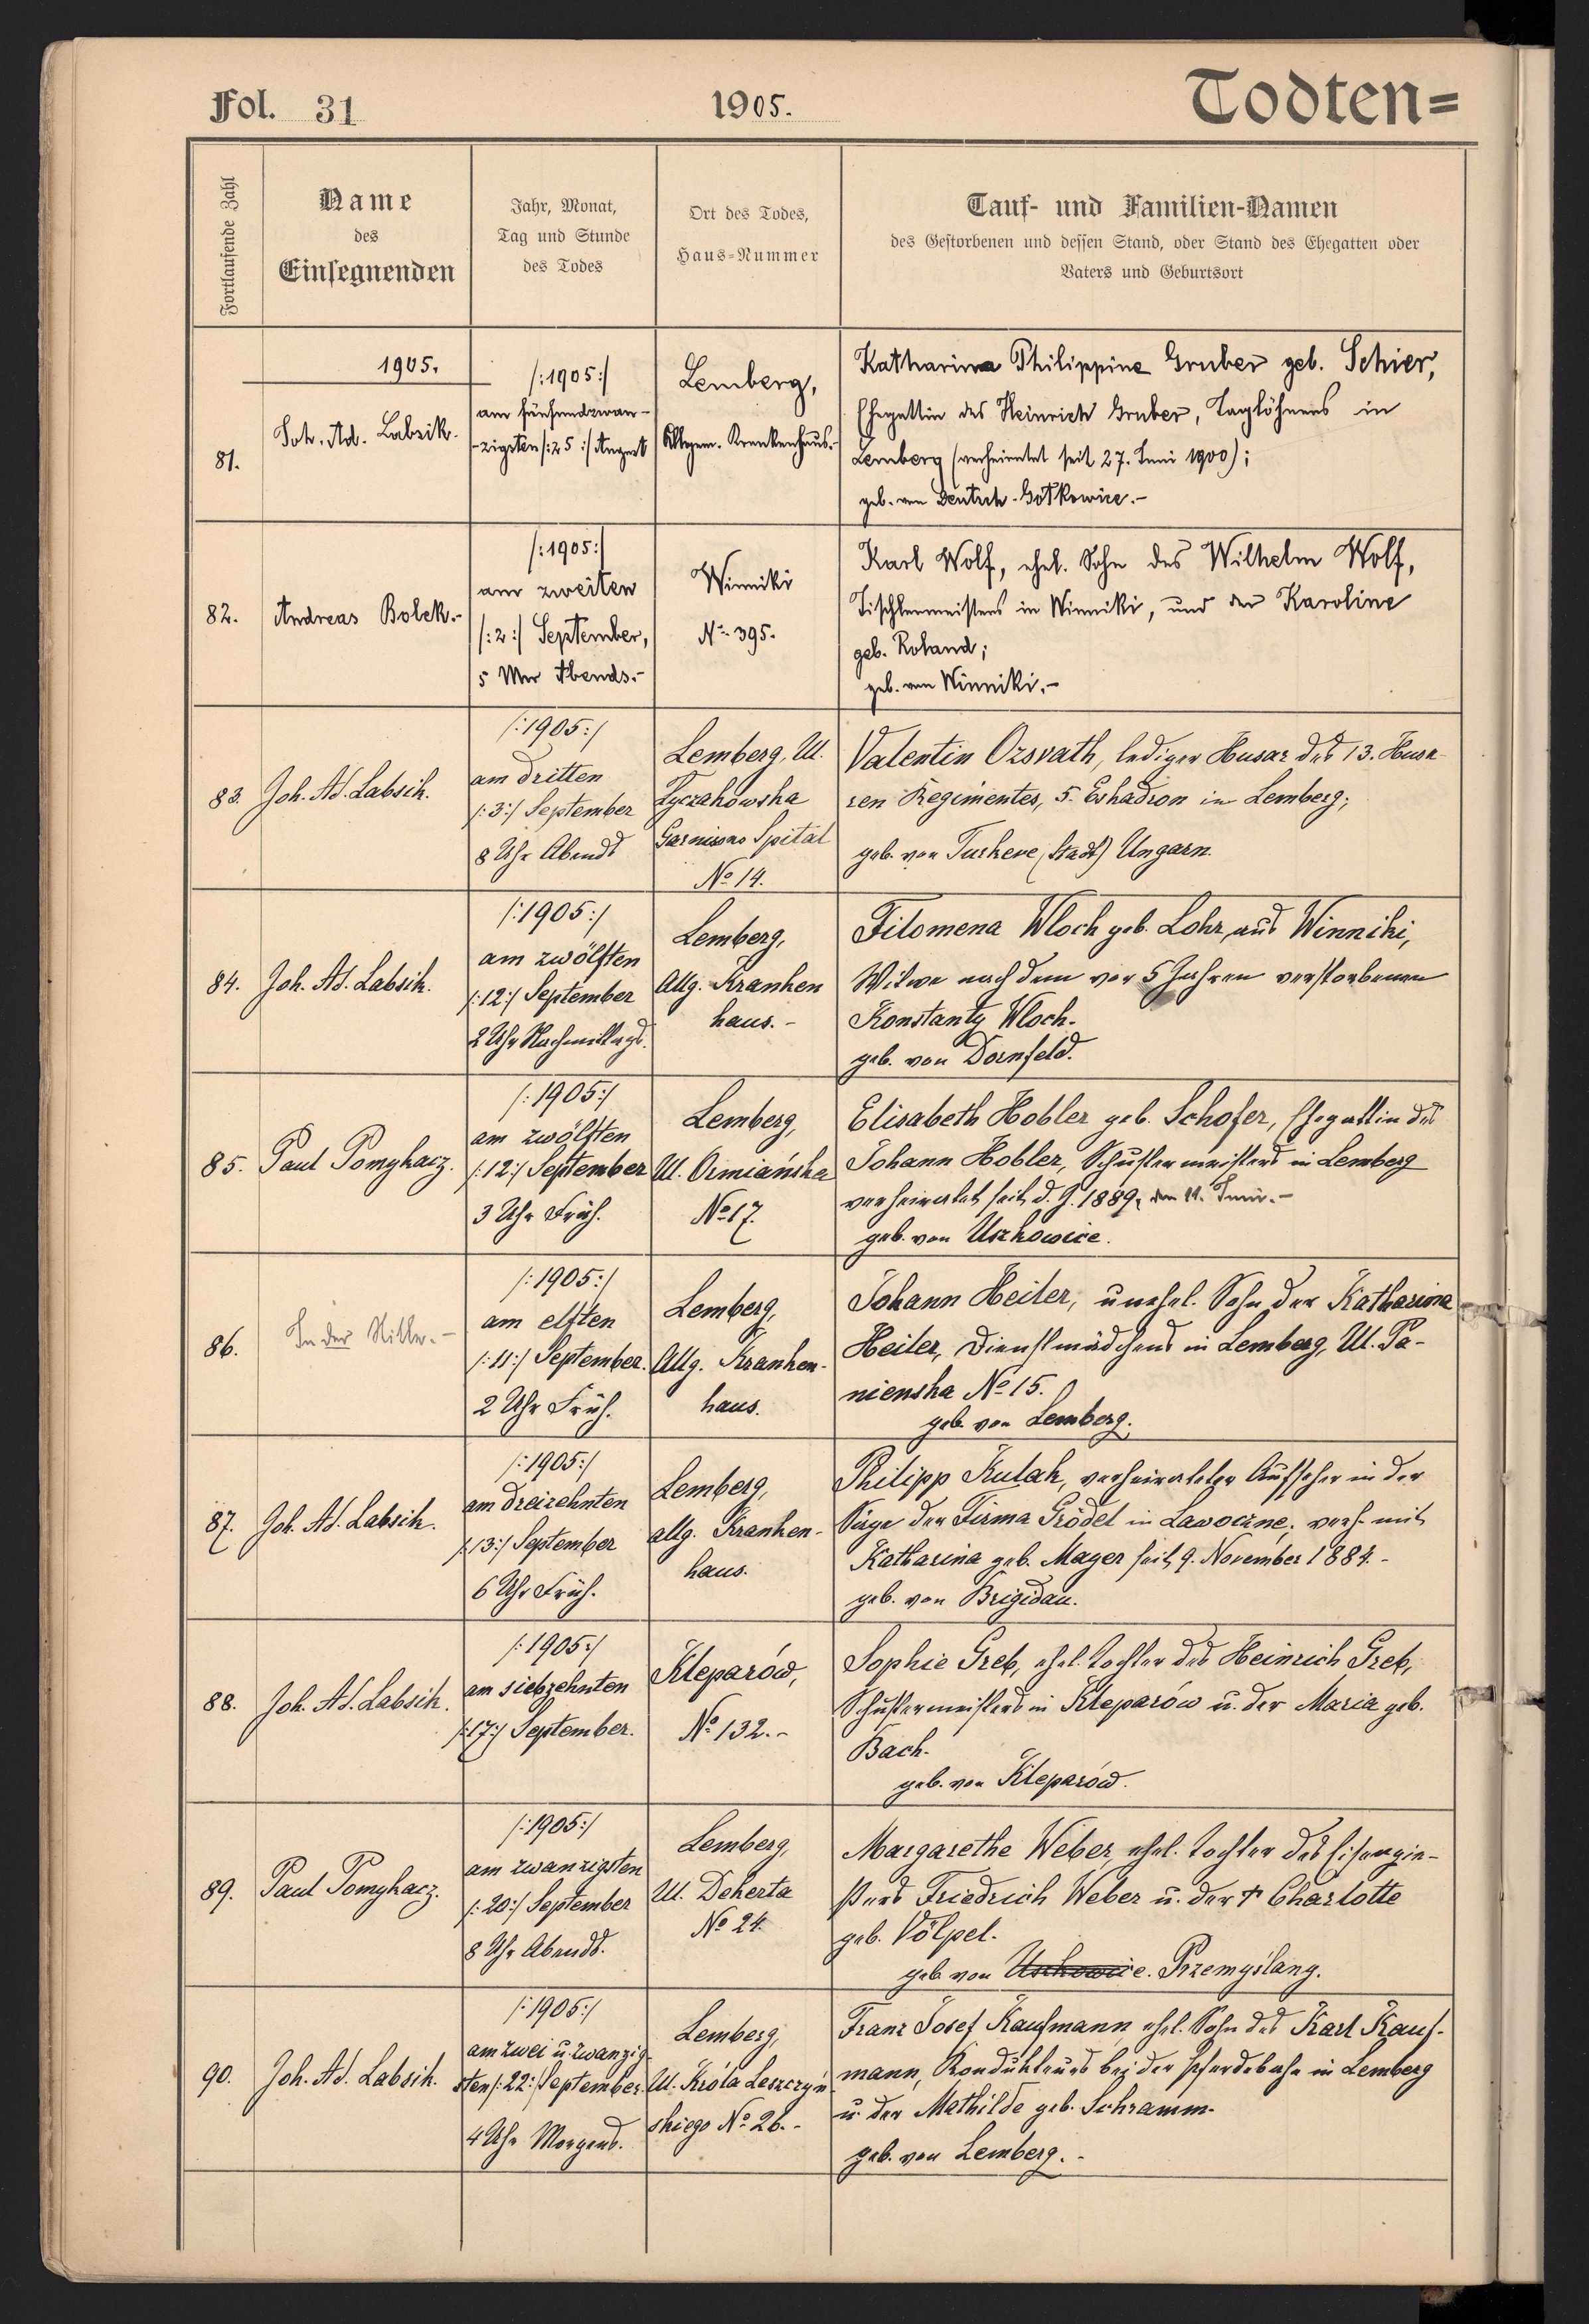 Fol. 31
1905.
Todten=
Fortlaufende Zahl
Name
des
Einsegnenden
Jahr, Monat,
Tag und Stunde
des Todes
Ort des Todes,
Haus-Nummer
Tauf- und Familien-Namen
des Gestorbenen und dessen Stand, oder Stand des Ehegatten oder
Vaters und Geburtsort
1905.
81.
Joh. Ad. Labsik.
/:1905:/
am fünfundzwan-
-zigsten /:25:/ August
Lemberg,
Allgem. Krankenhaus.-
Katharina Philippine Gruber geb. Schier,
Ehegattin des Heinrich Gruber, Taglöhners in
Lemberg (verheiratet seit 27. Juni 1900);
geb. von Deutsch-Gotkowice.-
82.
Andreas Bolek.-
/:1905:/
am zweiten
/:2:/ September,
5 Uhr Abends.-
Winniki
No. 395.
Karl Wolf, ehel. Sohn des Wilhelm Wolf,
Tischlermeisters in Winniki, und der Karoline
geb. Roland;
geb. von Winniki.-
83.
Joh. Ad. Labsik.
/:1905:/
am dritten
/:3:/ September
8 Uhr Abends
Lemberg, Ul.
Łyczakowska
Garnisons Spital
No 14.
Valentin Ozsvath, lediger Husar des 13. Husa-
ren Regimentes, 5. Eskadron in Lemberg;
geb. von Turkeve (Stadt) Ungarn.
84.
Joh. Ad. Labsik.
/:1905:/
am zwölften
/:12:/ September
2 Uhr Nachmittags.
Lemberg,
Allg. Kranken
haus.-
Filomena Wloch geb. Lohr, aus Winniki,
Witwe nach dem vor 5 Jahren verstorbenen
Konstanty Wloch.
geb. von Dornfeld.
85.
Paul Pomykacz.
/:1905:/
am zwölften
/:12:/ September
3 Uhr Früh.
Lemberg,
Ul. Ormiańska
No 17.
Elisabeth Hobler geb. Schofer, Ehegattin des
Johann Hobler, Schustermeisters in Lemberg
verheiratet seit d. J. 1889, den 11. Juni.-
geb. von Uszkowice.
86.
In der Stille.-
/:1905:/
am elften
/:11:/ September.
2 Uhr Früh.
Lemberg,
Allg. Kranken-
haus.
Johann Heiler, unehel. Sohn der Katharina
Heiler, Dienstmädchens in Lemberg, Ul. Pa-
nienska No 15.
geb. von Lemberg.
87.
Joh. Ad. Labsik.
/:1905:/
am dreizehnten
/:13:/ September
6 Uhr Früh.
Lemberg,
allg. Kranken-
haus.
Philipp Kulak, verheirateter Aufseher in der
Säge der Firma Grödel in Lawoczne; verh. mit
Katharina geb. Mager seit 9. November 1884.-
geb. von Brigidau.
88.
Joh. Ad. Labsik.
/:1905:/
am siebzehnten
/:17:/ September.
Kleparów,
No 132.-
Sophie Greb, ehel. Tochter des Heinrich Greb,
Schustermeisters in Kleparów u. der Maria geb.
Bach.
geb. von Kleparów.
89.
Paul Pomykacz.
/:1905:/
am zwanzigsten
/:20:/ September
8 Uhr Abends.
Lemberg,
Ul. Dekerta
No 24.
Margarethe Weber, ehel. Tochter des Eisengie-
ßers Friedrich Weber u. der † Charlotte
geb. Völpel.
geb. von Uszkowice. Przemyślany.
90.
Joh. Ad. Labsik.
/:1905:/
am zwei u. zwanzig-
sten /:22:/ September.
4 Uhr Morgens.
Lemberg,
Ul. Króla Leszczyń
skiego No 26.-
Franz Josef Kaufmann, ehel. Sohn des Karl Kauf-
mann, Kondukteurs bei der Pferdebahn in Lemberg
u. der Mathilde geb. Schramm.
geb. von Lemberg.-